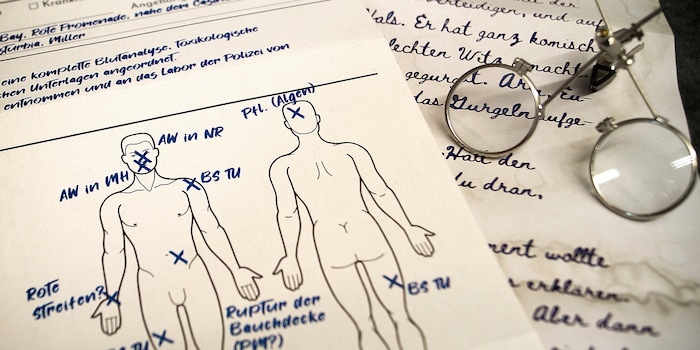 Krank
Angehö
Bay, Rote Promenade, nahe dem Casino
Disturbia, Miller
eine komplette Blutanalyse. Toxikologische
chen Unterlagen angeordnet.
entnommen und an das Labor der Polizei von
Ptl. (Algen)
AW in NR
AW in MH
BS TU
Rote
Streifen?
Ruptur der
Bauchdecke
(PM?)
BS TU
TU
der
verteidigen, und auf
Hals. Er hat ganz komisch
lechten Witz gemacht
gegurgelt.
das Gurgeln aufge-
Hält den
du dran.
ment wollte
erklären.
Aber dann